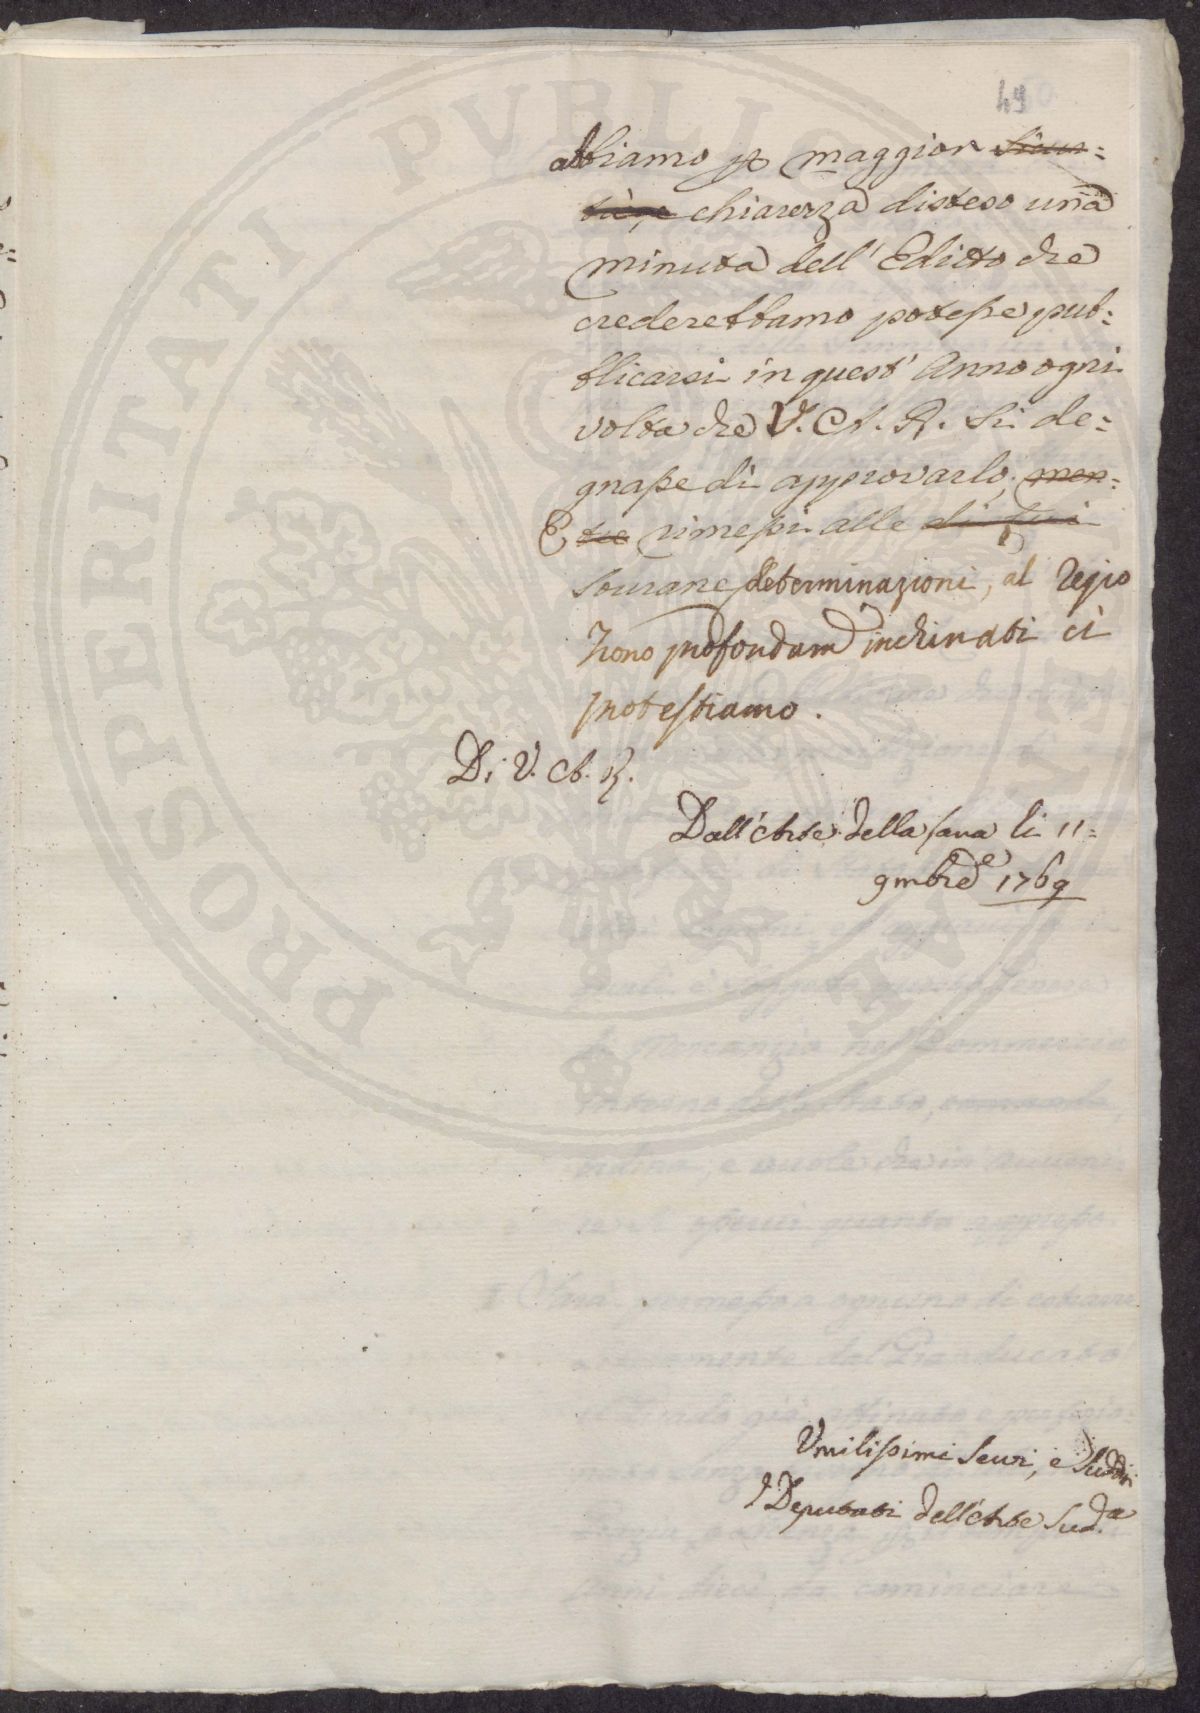 49
abbiamo p maggior Sicur=
tà, e chiarezza disteso una
minuta dell' Editto che
crederebbamo potesse pub=
blicarsi in quest' Anno ogni
volta che V. A. R. si de=
gnasse di approvarlo; men=
E tre rimessi alle di Lui
Sourane determinazioni, al Regio
Trono profondam.e inchinati ci
protestiamo.
Di V. A. R.
Dall'Arte della Lana li 11=
9mbre 1769
Umilissimi Serui, e Sudditi
I Deputati dell'Arte Sud.a
PROSPERITATI PVBLICAE